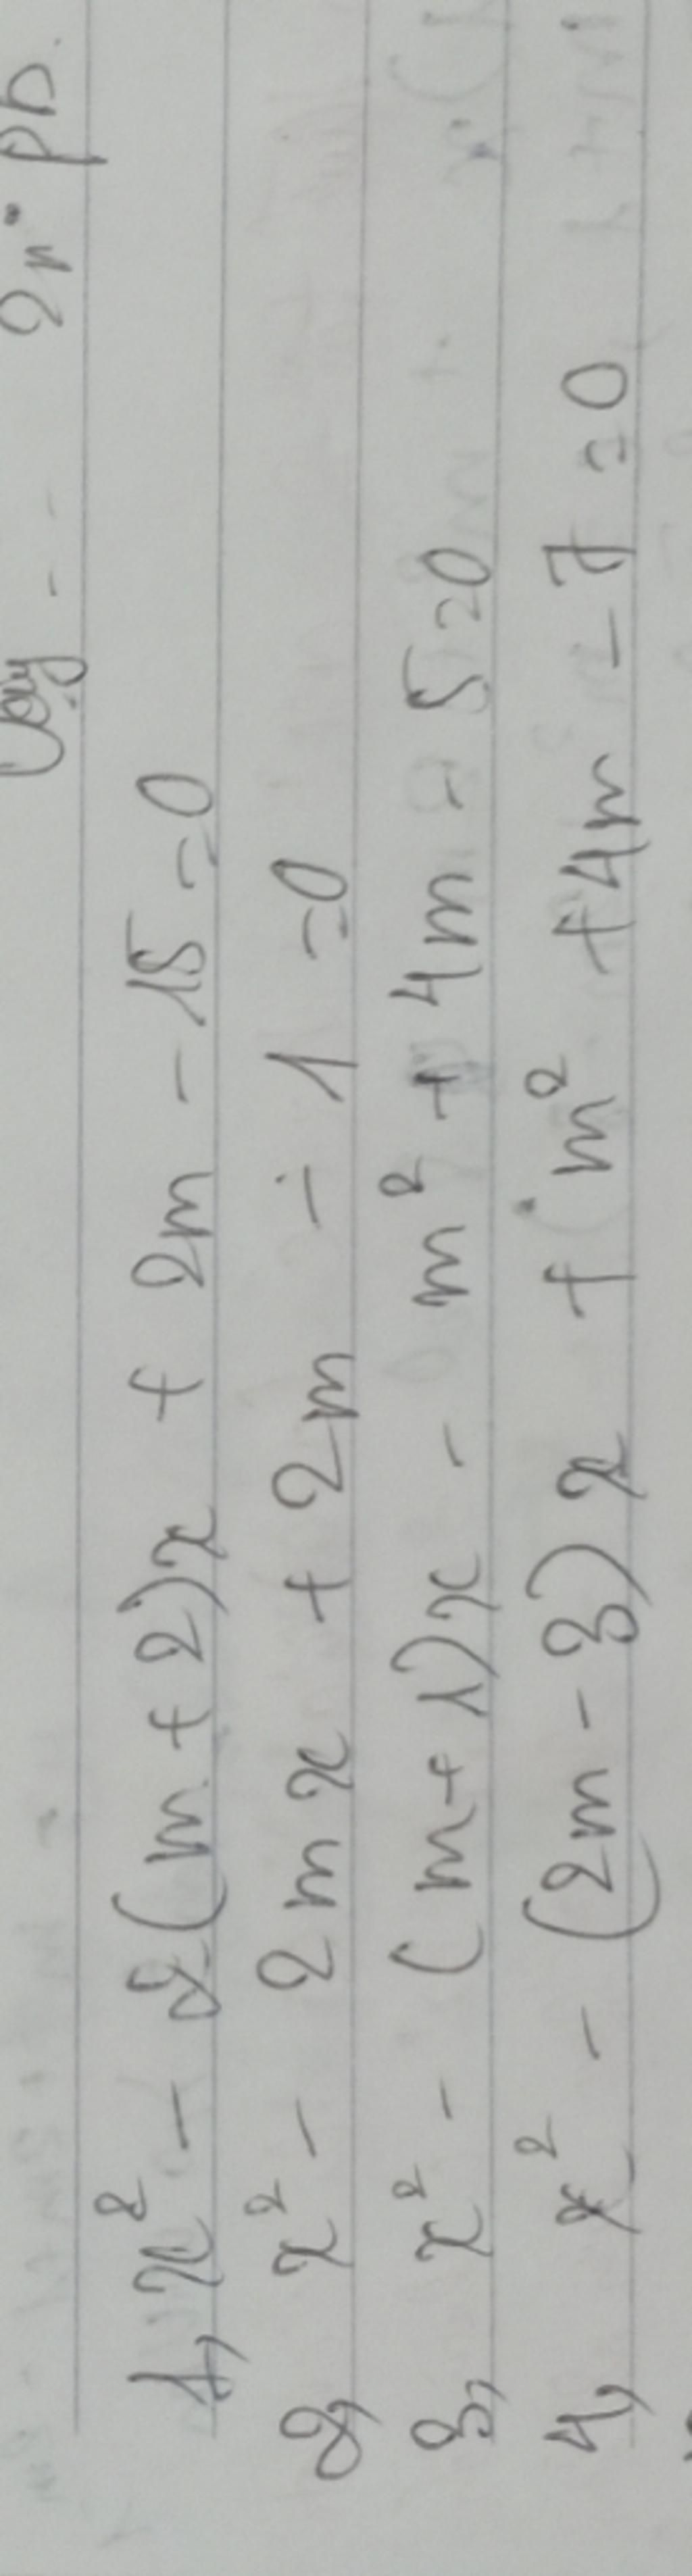 Vậy - - 2 n° pb.
1, x² - 2(m + 2)x + 2m - 15 = 0
2, x² - 2mx + 2m - 1 = 0
3, x² - (m + 1)x - m² + 4m - 5 = 0
4, x² - (2m - 3)x + m² + 4m - 7 = 0